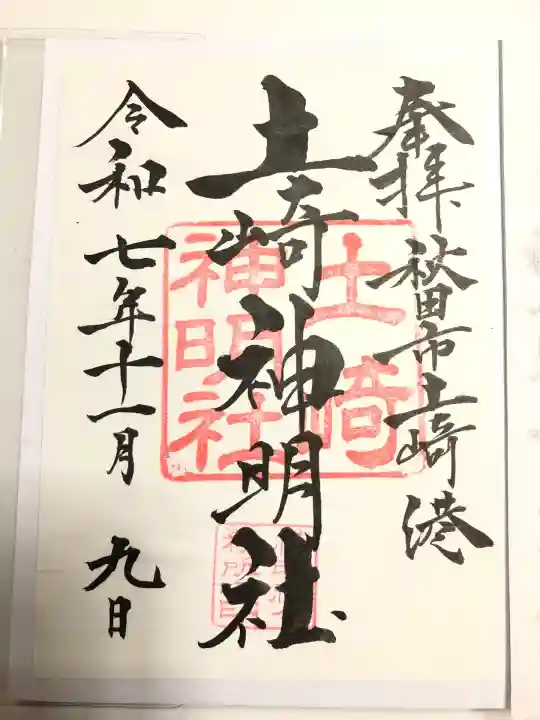 奉拝 秋田市土崎港
土崎神明社
令和七年十一月 九日
土崎
神明社